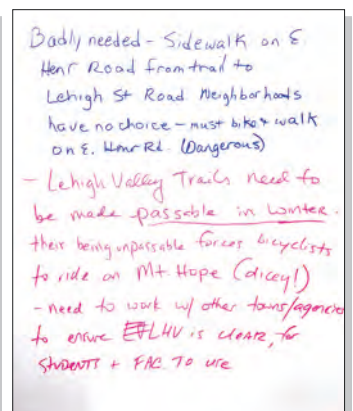 Badly needed - Sidewalk on E.
Henr Road from trail to
Lehigh St Road. Neighborhoods
have no choice - must bike + walk
on E. Henr Rd. (Dangerous)
- Lehigh Valley Trails need to
be made passable in winter.
their being unpassable forces bicyclists
to ride on Mt. Hope (dicey!)
- need to work w/ other towns/agencies
to ensure LHV is clear, for
students + FAC. to use